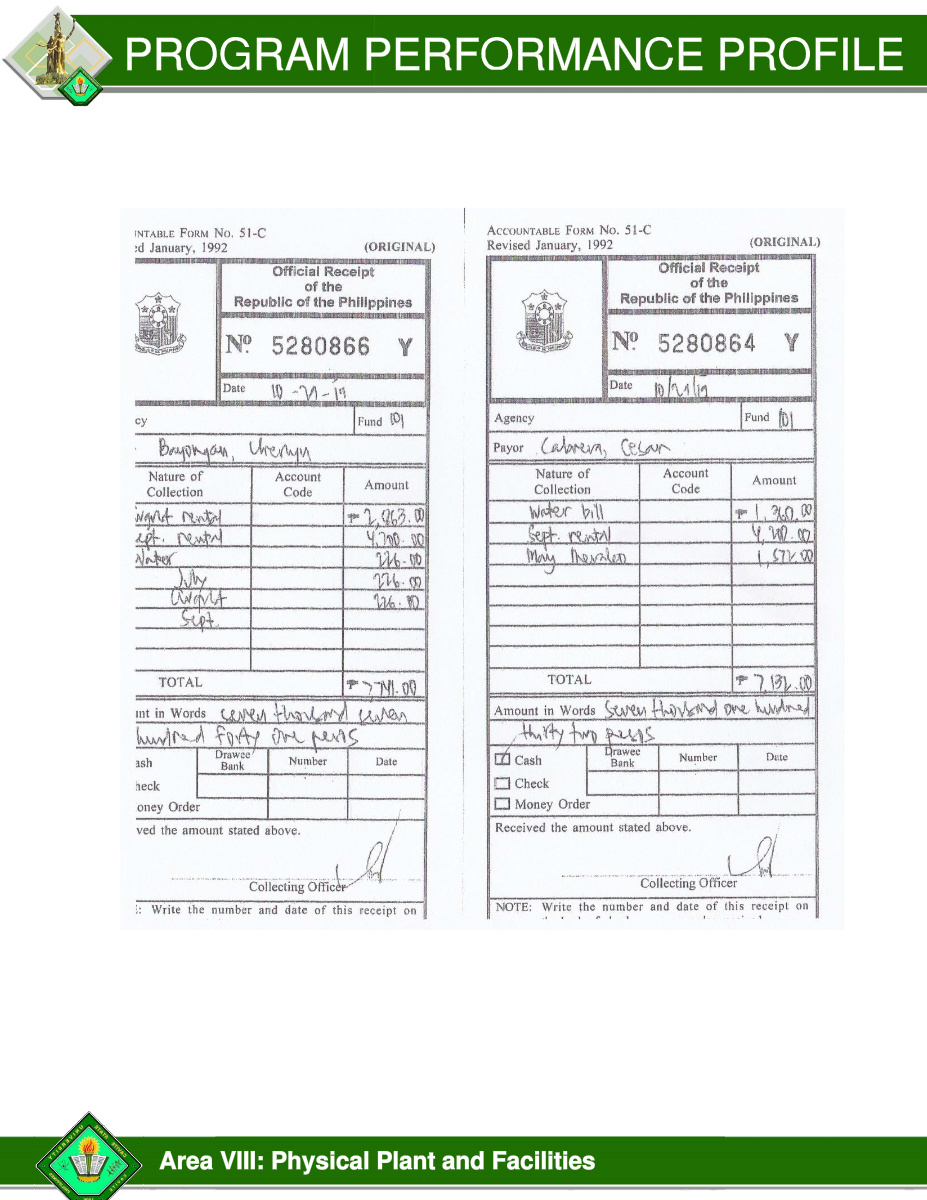 PROGRAM PERFORMANCE PROFILE
NTABLE FORM No. 51-C
d January, 1992 (ORIGINAL)
Official Receipt
of the
Republic of the Philippines
No. 5280866 Y
Date 10-21-19
cy Fund 101
Nature of Collection Account Code Amount
rental ₱ 2,863.00
ept. rental 4,200.00
Water 226.00
July 226.00
August 226.00
Sept.
TOTAL ₱ 7,741.00
nt in Words seven thousand seven
hundred forty one pesos
ash Drawee Bank Number Date
heck
oney Order
ved the amount stated above.
Collecting Officer
: Write the number and date of this receipt on
ACCOUNTABLE FORM No. 51-C
Revised January, 1992 (ORIGINAL)
Official Receipt
of the
Republic of the Philippines
No. 5280864 Y
Date 10/21/19
Agency Fund 101
Payor Cabrera, Cesar
Nature of Collection Account Code Amount
Water bill ₱ 1,360.00
Sept. rental 4,200.00
May 1,572.00
TOTAL ₱ 7,132.00
Amount in Words Seven thousand one hundred
thirty two pesos
Cash Drawee Bank Number Date
Check
Money Order
Received the amount stated above.
Collecting Officer
NOTE: Write the number and date of this receipt on
Area VIII: Physical Plant and Facilities